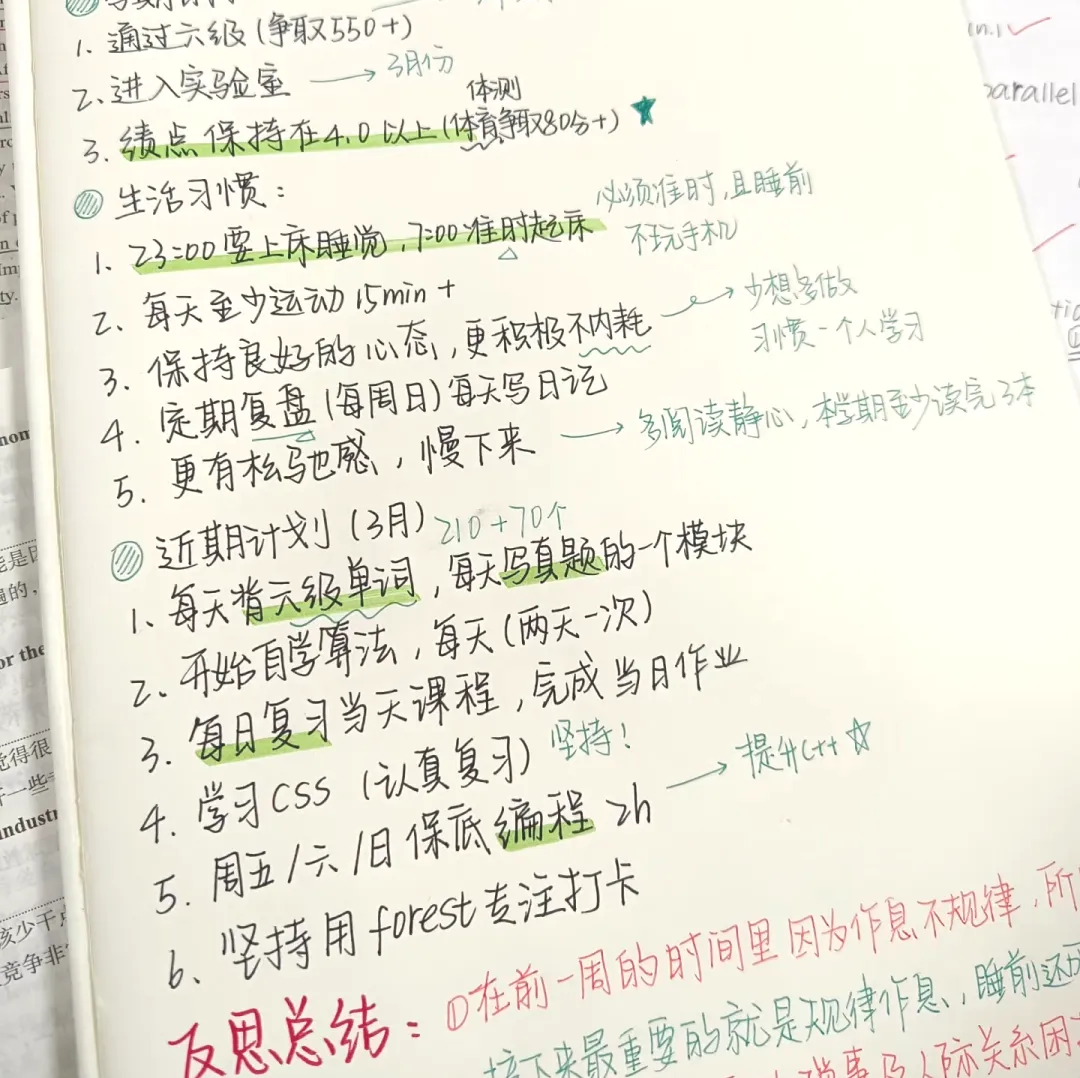 1. 通过六级 (争取550+)
2. 进入实验室 → 3月份
体测
3. 绩点保持在4.0以上(体育争取80分+)
生活习惯:
必须准时,且睡前
1. 23:00要上床睡觉,7:00准时起床
不玩手机
2. 每天至少运动15min+
3. 保持良好的心态,更积极不内耗 → 少想多做
习惯一个人学习
4. 定期复盘(每周日)每天写日记
5. 更有松弛感,慢下来 → 多阅读静心,本学期至少读完3本
近期计划(3月) 210+70个
1. 每天背六级单词,每天写真题的一个模块
2. 开始自学算法,每天(两天一次)
3. 每日复习当天课程,完成当日作业
4. 学习CSS (认真复习) 坚持!
5. 周五/六/日保底编程2h → 提升C++☆
6. 坚持用forest专注打卡
反思总结: ①在前一周的时间里因为作息不规律,所
接下来最重要的就是规律作息,睡前还
人际关系困
parallel
nom
or the
industr
觉得很
竞争非